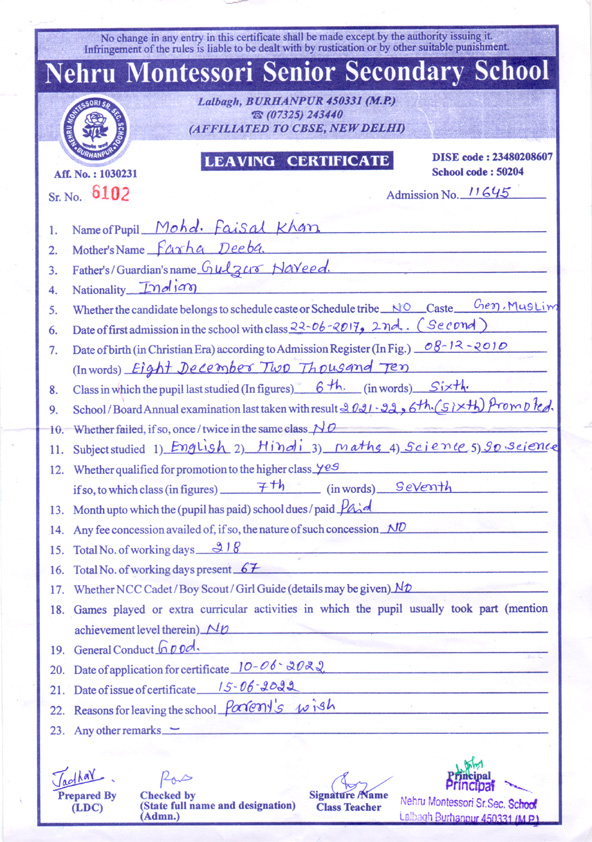 No change in any entry in this certificate shall be made except by the authority issuing it.
Infringement of the rules is liable to be dealt with by rustication or by other suitable punishment.
Nehru Montessori Senior Secondary School
Lalbagh, BURHANPUR 450331 (M.P.)
☎ (07325) 243440
(AFFILIATED TO CBSE, NEW DELHI)
NEHRU MONTESSORI SR. SEC. SCHOOL
BURHANPUR
LEAVING CERTIFICATE
DISE code : 23480208607
School code : 50204
Aff. No. : 1030231
Sr. No. 6102
Admission No. 11645
1. Name of Pupil Mohd. Faisal Khan
2. Mother's Name Farha Deeba.
3. Father's / Guardian's name Gulzar Naveed.
4. Nationality Indian
5. Whether the candidate belongs to schedule caste or Schedule tribe NO Caste Gen. Muslim
6. Date of first admission in the school with class 22-06-2017, 2nd. (Second)
7. Date of birth (in Christian Era) according to Admission Register (In Fig.) 08-12-2010
(In words) Eight December Two Thousand Ten
8. Class in which the pupil last studied (In figures) 6th. (in words) Sixth.
9. School / Board Annual examination last taken with result 2021-22, 6th. (Sixth) Promoted.
10. Whether failed, if so, once / twice in the same class NO
11. Subject studied 1) English 2) Hindi 3) maths 4) Science 5) So science
12. Whether qualified for promotion to the higher class yes
if so, to which class (in figures) 7th (in words) Seventh
13. Month upto which the (pupil has paid) school dues / paid Paid
14. Any fee concession availed of, if so, the nature of such concession NO
15. Total No. of working days 218
16. Total No. of working days present 67
17. Whether NCC Cadet / Boy Scout / Girl Guide (details may be given) No
18. Games played or extra curricular activities in which the pupil usually took part (mention
achievement level therein) NO
19. General Conduct Good.
20. Date of application for certificate 10-06-2022
21. Date of issue of certificate 15-06-2022
22. Reasons for leaving the school Parent's wish
23. Any other remarks –
Jadhav
Prepared By
(LDC)
Checked by
(State full name and designation)
(Admn.)
Signature /Name
Class Teacher
Principal
Principal
Nehru Montessori Sr.Sec. School
Lalbagh Burhanpur 450331 (M.P.)